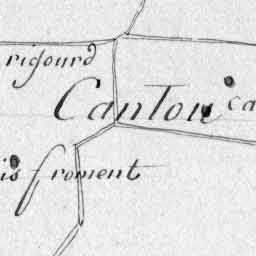 rigourd
Canton ca
is froment